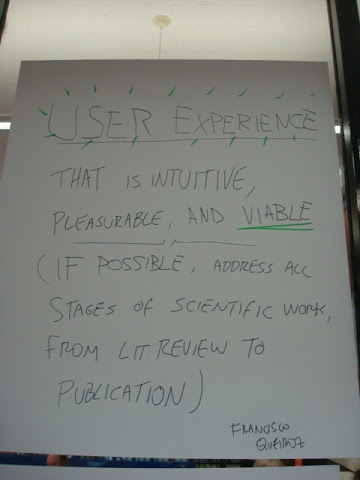 USER EXPERIENCE
THAT IS INTUITIVE,
PLEASURABLE, AND VIABLE
(IF POSSIBLE, ADDRESS ALL
STAGES OF SCIENTIFIC WORK,
FROM LIT. REVIEW TO
PUBLICATION)
FRANCISCO
QUEIROZ